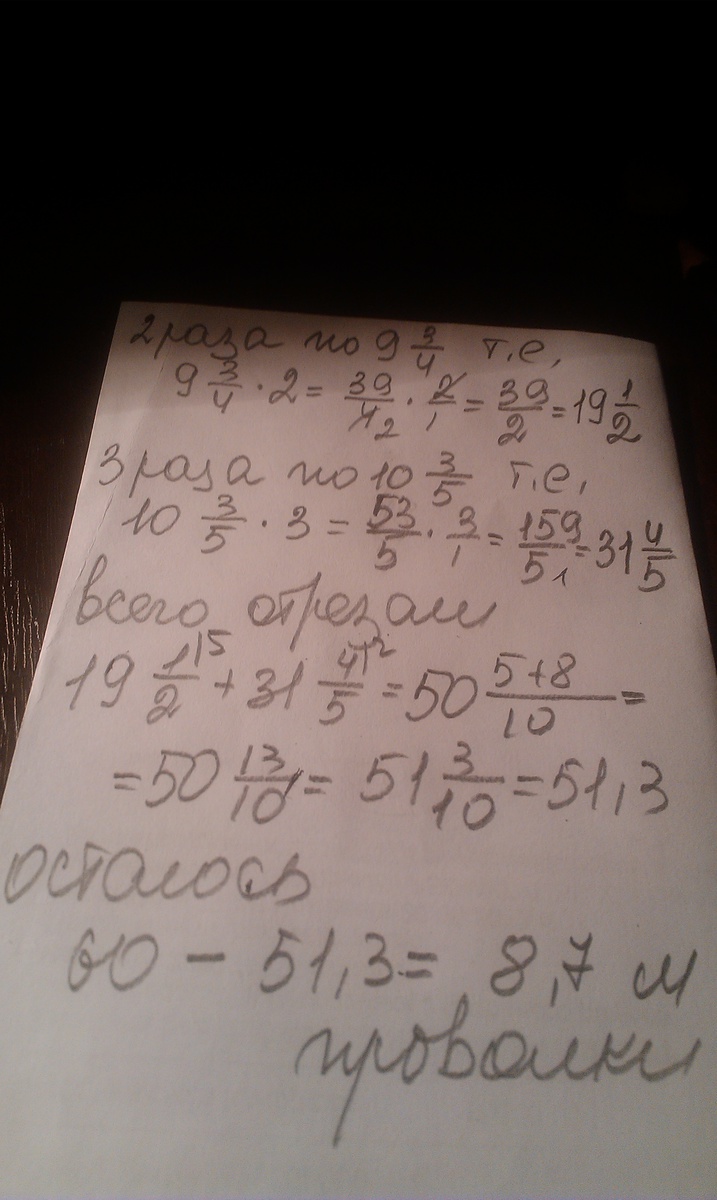 2 раза по 9 3/4 т.е.
9 3/4 · 2 = 39/4 2 · 2/1 = 39/2 = 19 1/2
3 раза по 10 3/5 т.е.
10 3/5 · 3 = 53/5 · 3/1 = 159/5 = 31 4/5
всего отрезали
19 1|5/2 + 31 4|2/5 = 50 5+8/10 =
= 50 13/10 = 51 3/10 = 51,3
осталось
60 - 51,3 = 8,7 м
проволки